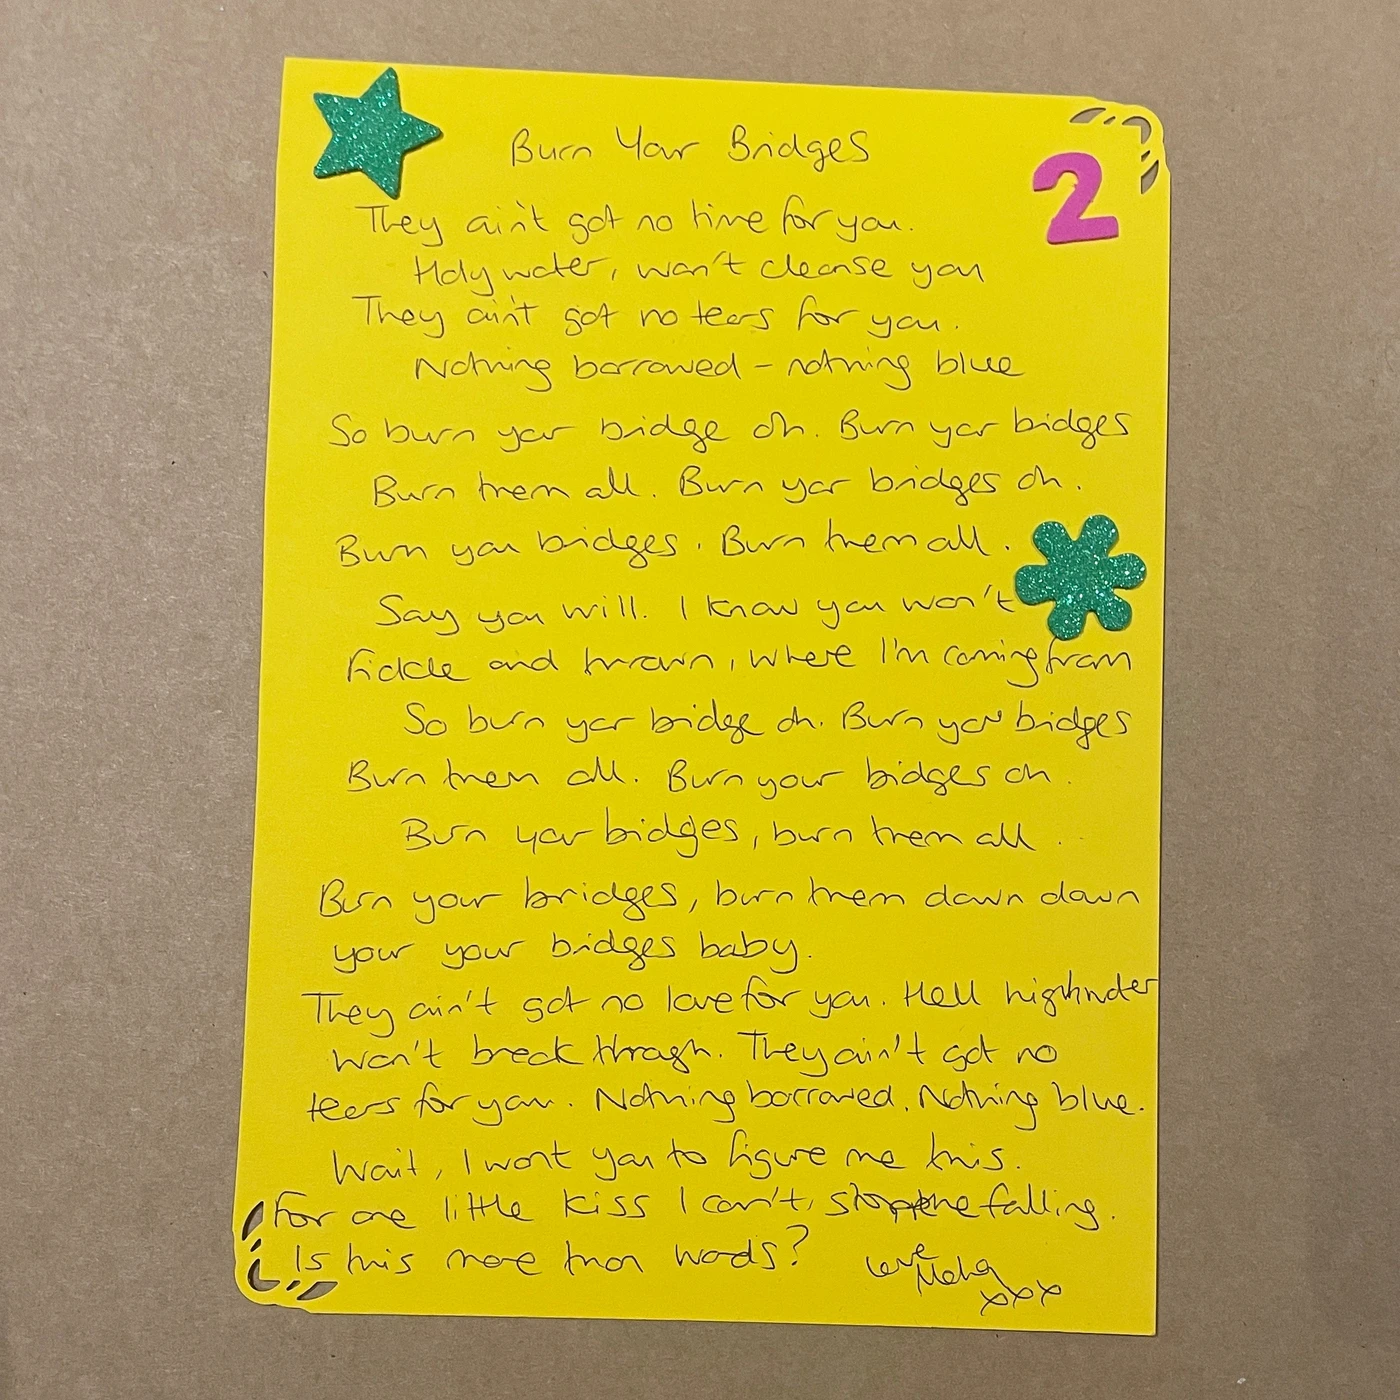 Burn Your Bridges
2
They ain't got no time for you.
Holy water, won't cleanse you
They ain't got no tears for you.
Nothing borrowed - nothing blue
So burn your bridge oh. Burn your bridges
Burn them all. Burn your bridges oh.
Burn your bridges. Burn them all.
Say you will. I know you won't
Fickle and thrown, where I'm coming from
So burn your bridge oh. Burn your bridges
Burn them all. Burn your bridges oh.
Burn your bridges, burn them all.
Burn your bridges, burn them down down
your your bridges baby.
They ain't got no love for you. Hell highwater
won't break through. They ain't got no
tears for you. Nothing borrowed. Nothing blue.
Wait, I want you to figure me this.
For one little kiss I can't, stop the falling.
Is this more than words?
Love
xxx